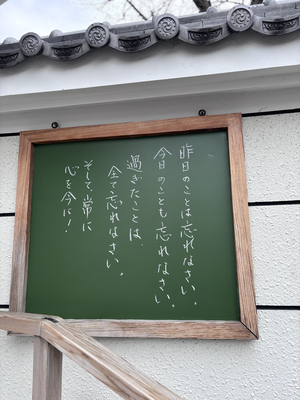 昨日のことは忘れなさい。
今日のことも忘れなさい。
過ぎたことは、
全て忘れなさい。
そして、常に
心を今に!